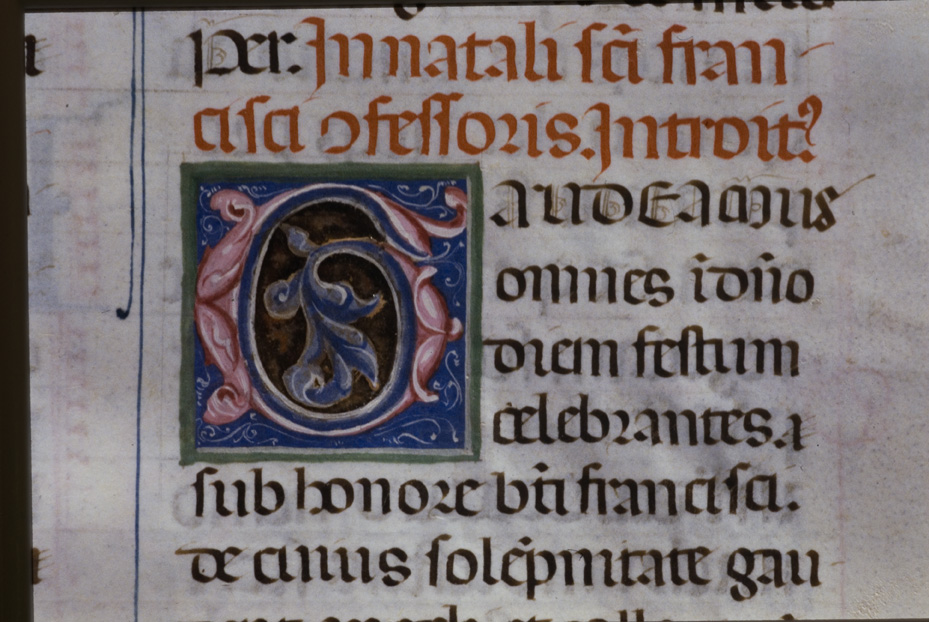 per. In natali sc̄i fran
cisci ɔfessoris. Introit᷒
GAUDEAMUS
omnes ī dn̄o
diem festum
celebrantes.
sub honore bt̄i francisci.
de cuius solēpnitate gau